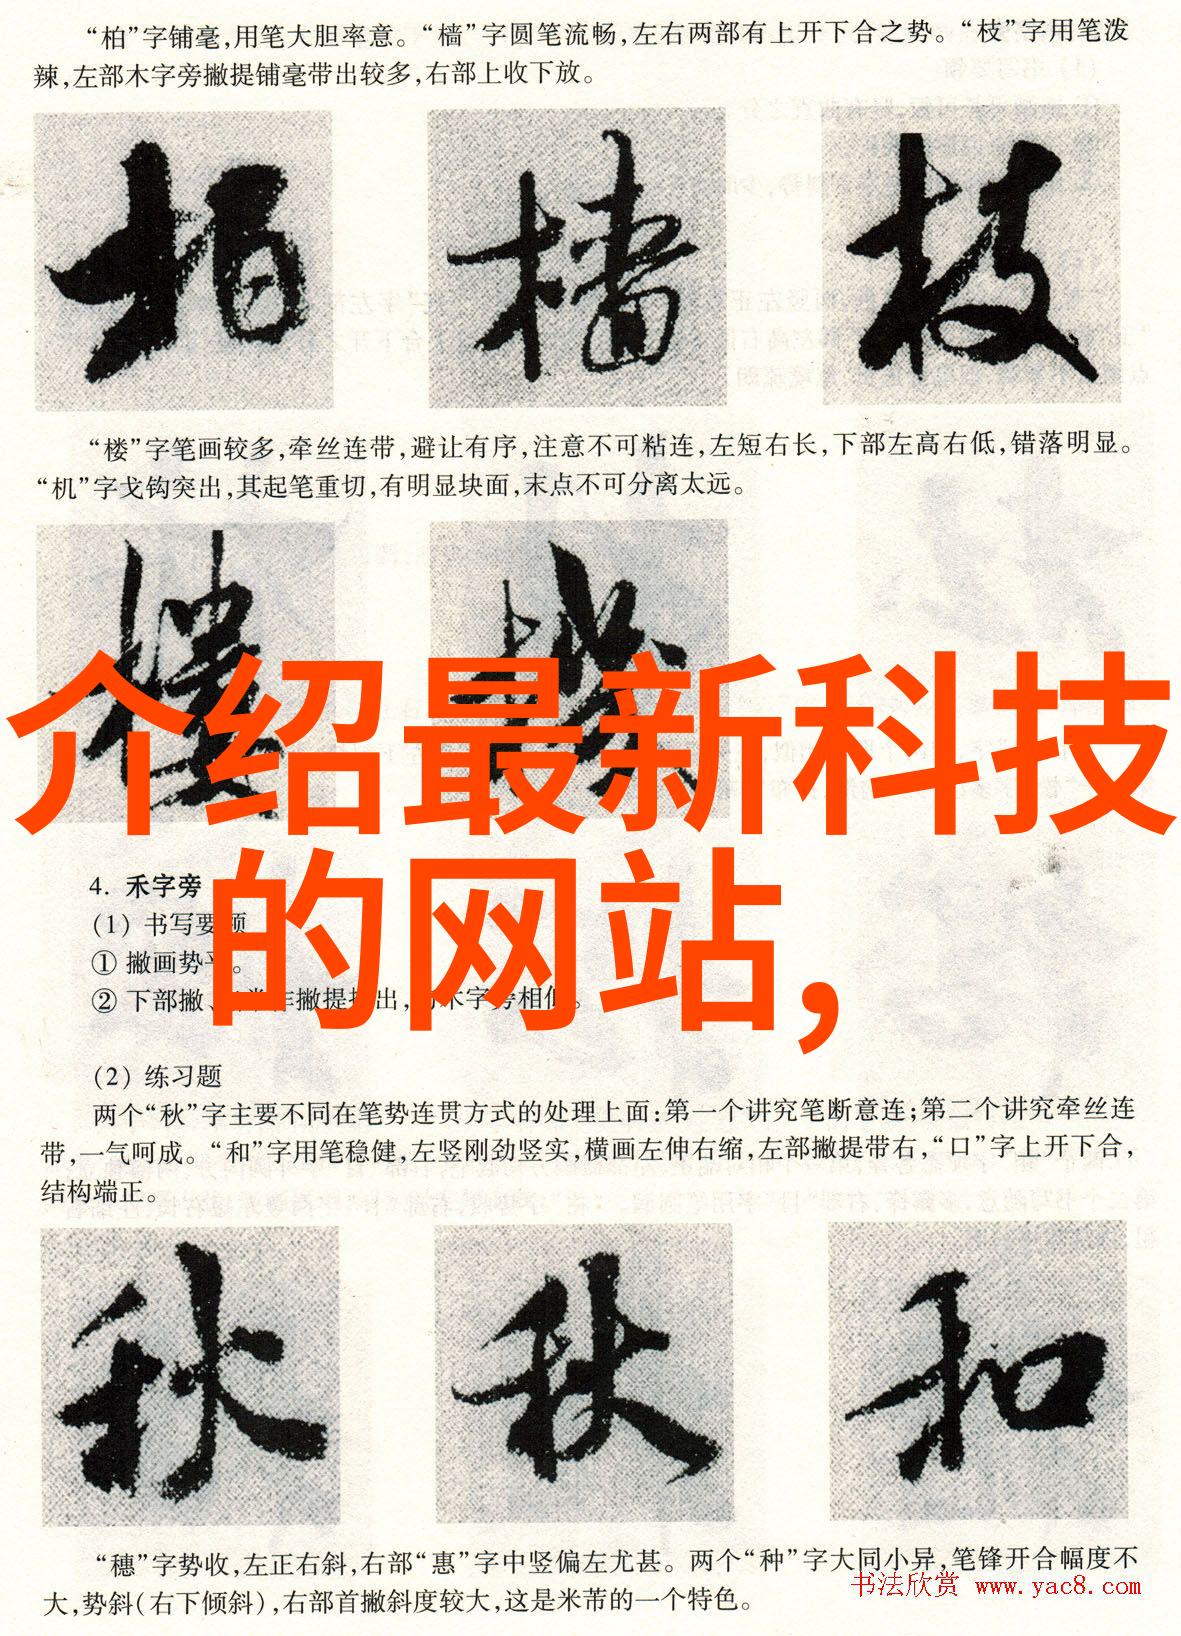 “柏”字铺毫,用笔大胆率意。“樯”字圆笔流畅,左右两部有上开下合之势。“枝”字用笔泼
辣,左部木字旁撇提铺毫带出较多,右部上收下放。
柏 樯 枝
“楼”字笔画较多,牵丝连带,避让有序,注意不可粘连,左短右长,下部左高右低,错落明显。
“机”字戈钩突出,其起笔重切,有明显块面,末点不可分离太远。
樓 機
介绍最新科技
的网站,
4. 禾字旁
(1) 书写要领
① 撇画势平。
② 下部撇、
撇提
出,
木字旁相似。
(2) 练习题
两个“秋”字主要不同在笔势连贯方式的处理上面:第一个讲究笔断意连;第二个讲究牵丝连
带,一气呵成。“和”字用笔稳健,左竖刚劲竖实,横画左伸右缩,左部撇提带右,“口”字上开下合,
结构端正。
秋 秋 和
“穗”字势收,左正右斜,右部“惠”字中竖偏左尤甚。两个“种”字大同小异,笔锋开合幅度不
大,势斜(右下倾斜),右部首撇斜度较大,这是米芾的一个特色。
书法欣赏 www.yac8.com